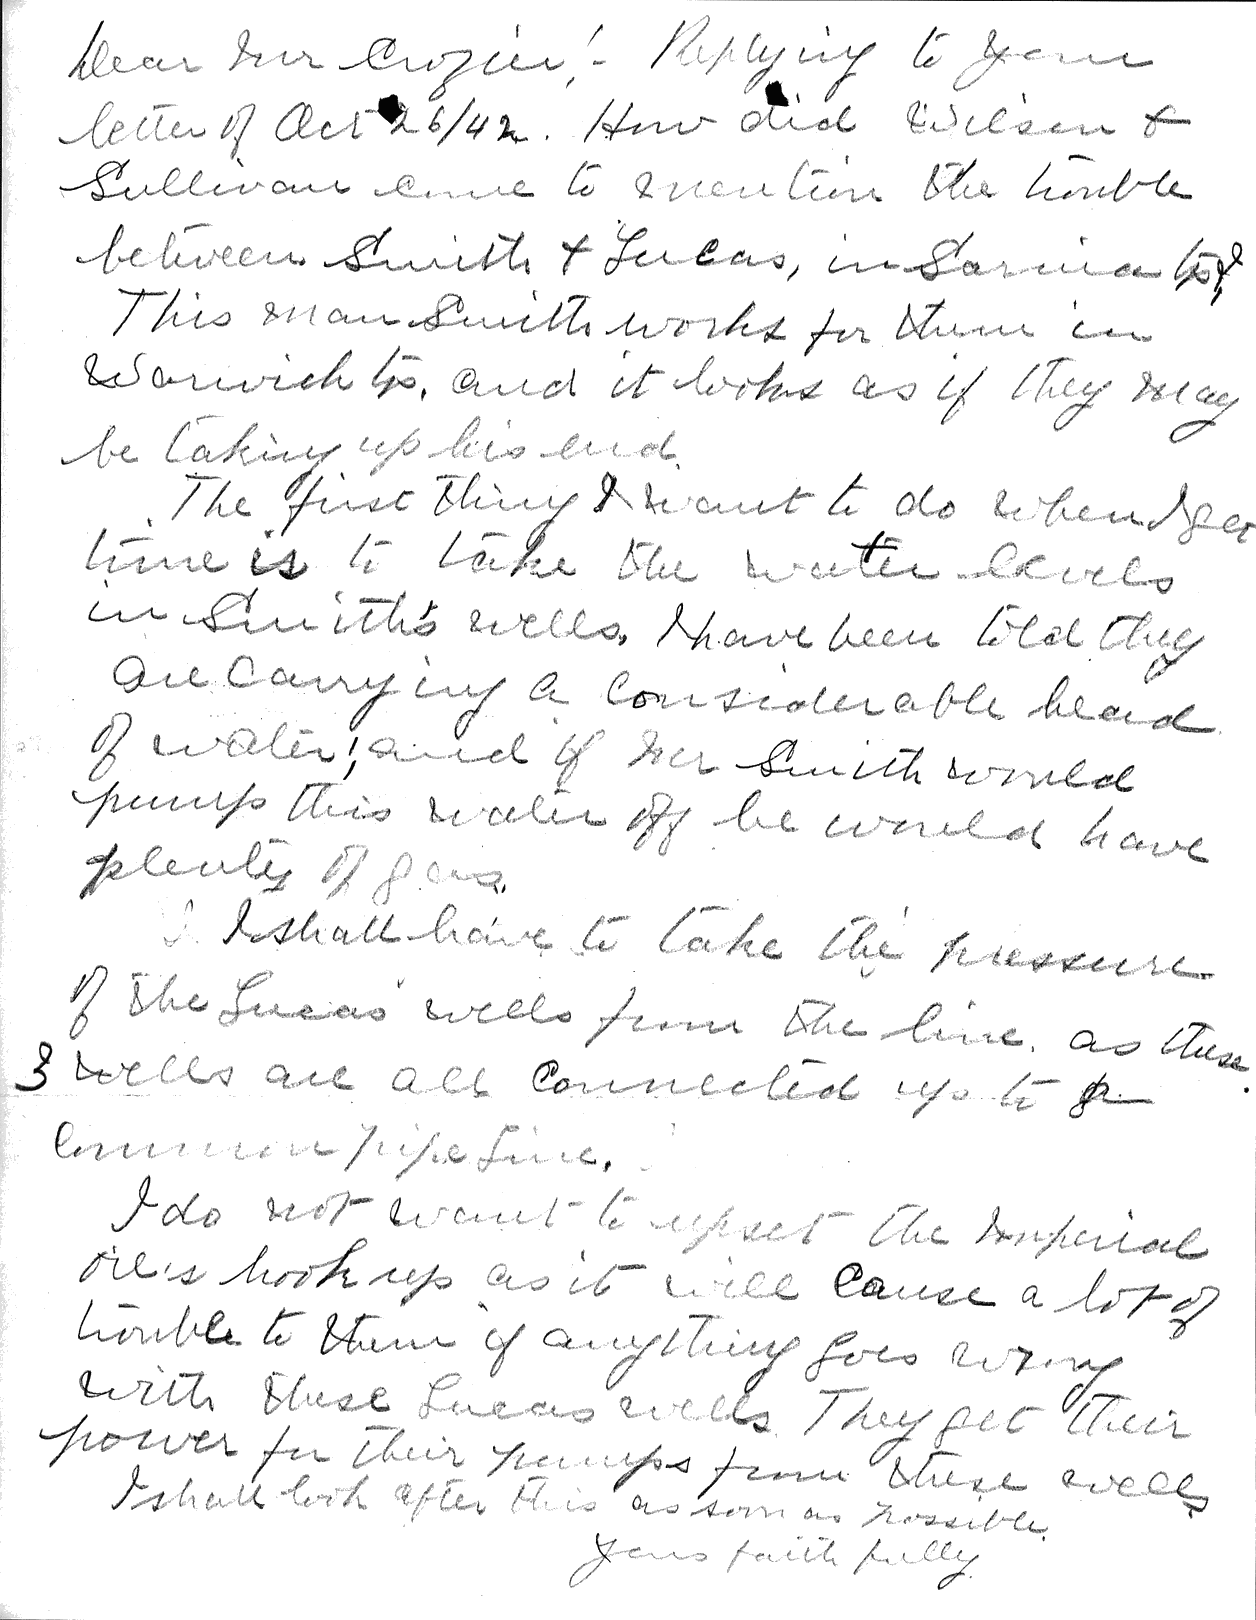 Dear Mr Crozier! - Replying to your
letter of Oct 26/42. How did Wilson &
Sullivan come to mention the trouble
between Smith & Lucas, in Sarnia tp?
This man Smith works for them in
Warwick tp. and it looks as if they may
be taking up his end.
The first thing I want to do when I get
time is to take the water levels
in Smith's wells, I have been told they
are carrying a considerable head
of water, and if Mr Smith would
pump this water off he would have
plenty of gas.
I shall have to take the pressure
of the Lucas wells from the line, as these
3 wells are all connected up to a
common pipe line.
I do not want to upset the Imperial
Oil's hook up as it will cause a lot of
trouble to them if anything goes wrong
with these Lucas wells. They get their
power for their pumps from these wells
I shall look after this as soon as possible.
Yours faithfully